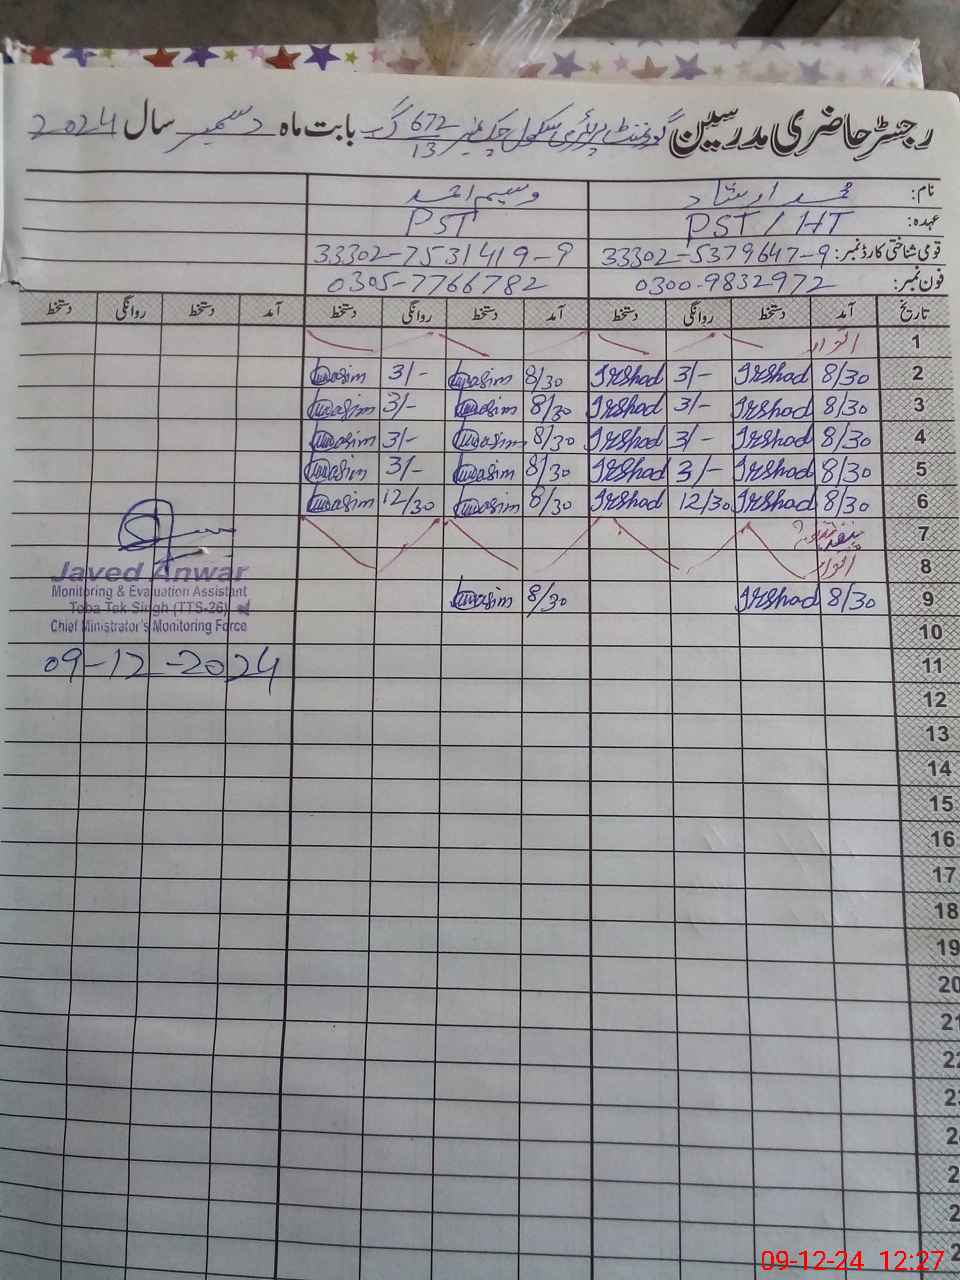 رجسٹر حاضری مدرسین گورنمنٹ پرائمری سکول چک نمبر 672/13 گ ب بابت ماہ دسمبر سال 2024
نام: محمد ارشاد وسیم احمد
عہدہ: PST / HT PST
قومی شناختی کارڈ نمبر: 33302-5379647-9 33302-7531419-9
فون نمبر: 0300-9832972 0305-7766782
تاریخ آمد دستخط روانگی دستخط آمد دستخط روانگی دستخط آمد دستخط روانگی دستخط
1 اتوار
2 8/30 Irshad 3/- Irshad 8/30 Wasim 3/- Wasim
3 8/30 Irshad 3/- Irshad 8/30 Wasim 3/- Wasim
4 8/30 Irshad 3/- Irshad 8/30 Wasim 3/- Wasim
5 8/30 Irshad 3/- Irshad 8/30 Wasim 3/- Wasim
6 8/30 Irshad 12/30 Irshad 8/30 Wasim 12/30 Wasim
7
8 اتوار
9 8/30 Irshad 8/30 Wasim
Javed Anwar
Monitoring & Evaluation Assistant
Toba Tek Singh (TTS-26)
Chief Ministrator's Monitoring Force
09-12-2024
10
11
12
13
14
15
16
17
18
19
20
21
22
09-12-24 12:27